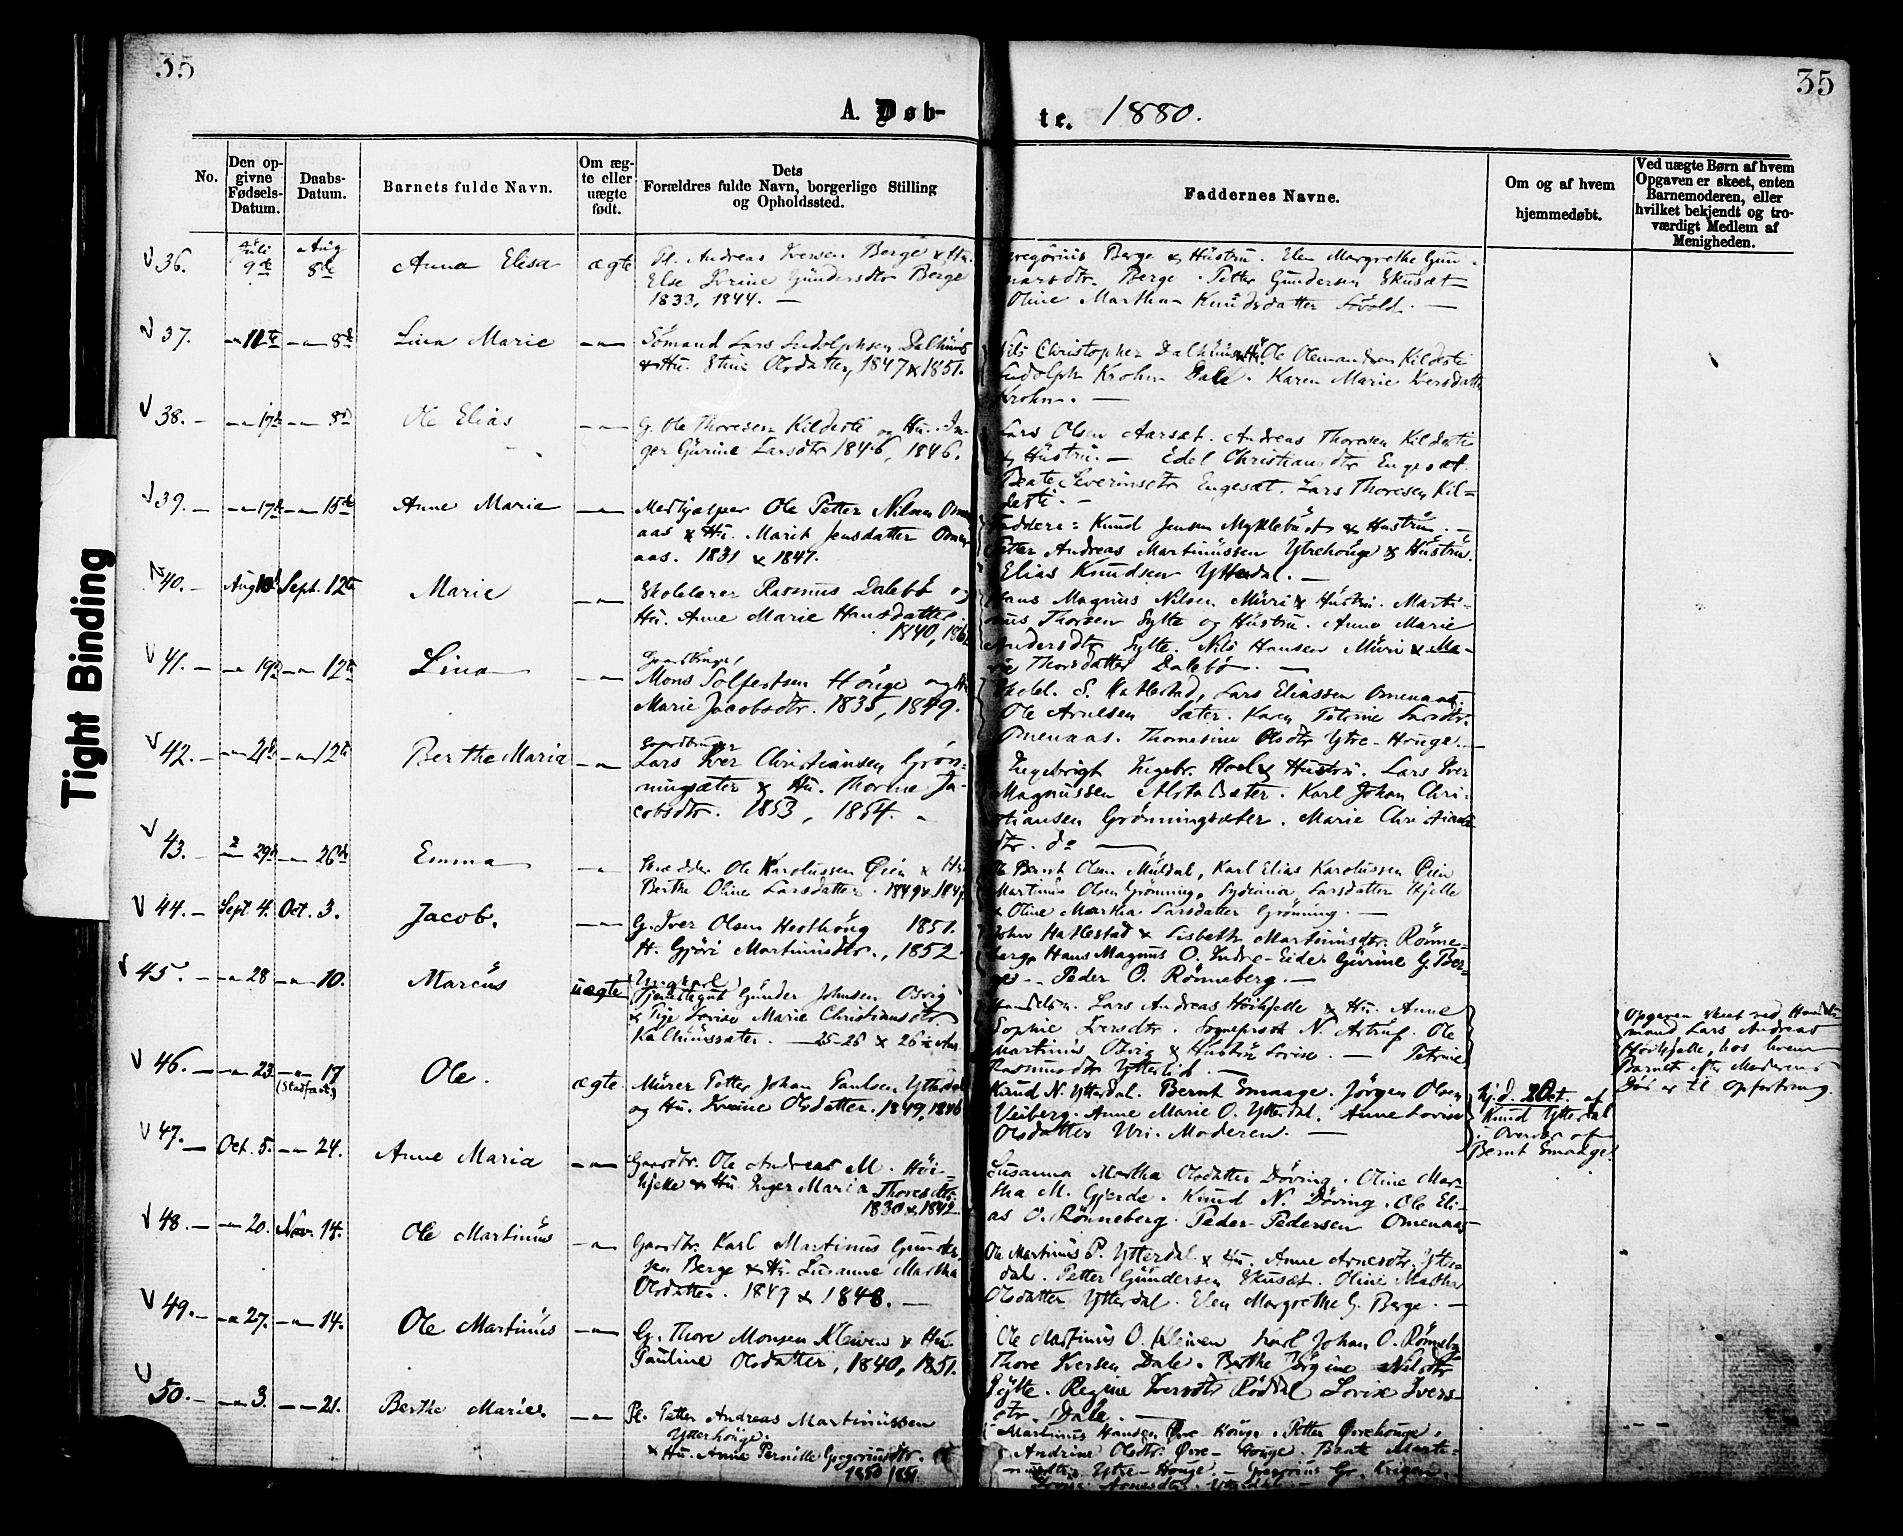 35
35
A. Døb-
te. 1880.
No.
Den op-
givne
Fødsels-
Datum.
Daabs-
Datum.
Barnets fulde Navn.
Om æg-
te eller
uægte
født.
Dets
Forældres fulde Navn, borgerlige Stilling
og Opholdssted.
Faddernes Navne.
Om og af hvem
hjemmedøbt.
Ved uægte Børn af hvem
Opgaven er skeet, enten
Barnemoderen, eller
hvilket bekjendt og tro-
værdigt Medlem af
Menigheden.
36. Juli 9de Aug 8de Anna Elisa ægte
Pl. Andreas Iversen Berge & Hu.
Else Ivrine Gundersdtr Berge
1833, 1844. —
Gregorius Berge & Hustru. Elen Margrethe Gun-
narsdtr. Berge. Petter Gundersen Ekusæt
Oline Martha Knudsdatter Løvold. —
37. —"— 11te —"— 8de Lina Marie —"—
Sömand Lars Ludolphsen Dalhuus
& Hu. Stine Olsdatter, 1847 & 1851.
Nils Christopher Dalhuus & H. Ole Olemandsen Kildesti
Ludolph Krohn Dale. Karen Marie Iversdatter
Krohn. —
38. — —"— 17de —"— 8de Ole Elias —"—
G. Ole Thoresen Kildesti og Hu. In-
ger Gurine Larsdtr 1846, 1846.
Lars Olsen Aarsæt. Andreas Thoresen Kildesti
& Hustru. — Edel Christiansdtr Engesæt.
Beate Severinsdtr Engesæt. Lars Thoresen Kil-
desti. —
39. — —"— 17de —"— 15de Anne Maria —"—
Medhjælper Ole Petter Nilsen Omen-
aas & Hu. Marit Jensdatter Omen-
aas. 1831 & 1841.
Faddere: Knud Jensen Myklebust & Hustru. —
Petter Andreas Martinussen Ytrehouge & Hustru.
Elias Knudsen Ytterdal. —
40. — Aug Sept. 12te Marie —"—
Skolelærer Rasmus Dalebö og
Hu. Anne Marie Hansdatter.
1840,
Hans Magnus Nilsen Muri & Hustru. Marti-
nus Thorsen Sylte og Hustru. Anne Marie
Andersdtr Sylte. Nils Hansen Muri & Ma-
rie Thorsdatter Dalebö. —
41. — —"— 19de —"— 12te Lina —"—
Gaardbruger
Mons Solfestsen Houge og Hu
Marie Jacobsdtr. 1835, 1849.
S. Hatlestad, Lars Eliassen Omenaas.
Ole Arnesen Sæter. Karen Petrine Larsdtr.
Omenaas. Thomesine Olsdtr Ytre-Houge. —
42. — —"— —"— 12te Berthe Maria —"—
Gaardbruger
Lars Iver Christiansen Grøn-
ningsæter & Hu. Thorine Ja-
cobsdtr. 1853, 1854.
Ingebrigt Ingebr. Hoel & Hustru. Lars Iver
Magnussen Alstadsæter. Karl Johan Chri-
stiansen Grønningsæter. Marie Christians-
dtr. do —
43. — —"— 29de —"— 26de Emma —"—
Skrædder Ole Karolussen Øien & Hu
Berthe Oline Larsdatter. 1849 &
Ole Bernt Olsen Muldal, Karl Elias Karolussen Øien
Martinus Olsen Grønning, Larsdatter Hjelle
& Oline Martha Larsdatter Grønning. —
44. — Sept 4. Oct. 3. Jacob. —"—
G. Iver Olsen Hesthoug 1851.
H. Gjöri Martinusdtr., 1852.
John Hatlestad & Lisbeth Martinusdtr. Rønne-
berg. Hans Magnus O. Indre-Eide. Gurine G. Ber-
ge. Peder O. Rønneberg. —
45. — —"— 28 —"— 10. Marcus uægte
Ungkarl
Tjenestegut Gunder Johnsen Osvig
& Pige Lovise Marie Christiansdtr.
Kalhuussæter. — 25-26 & 26½ Aar
Lars Andreas Höihjelle & Hu. Anne
Sophie Iversdtr. Sogneprest N. Astrup. Ole
Martinus Osvig & Hustru Lovise. — Petrine
Rasmusdtr Ytterlid. —
Opgaven skeet ved
mand Lars Andreas
Höihjelle, hos hvem
Barnet efter Moderens
Död er til opfostring.
46. — —"— 23. —"— 17 (Stadfæst.) Ole. ægte
Murer Petter Johan Paulsen Ytterdal
og Hu. Ivrine Olsdatter. 1849, 1846
Knud N. Ytterdal. Bernt Smaage. Jörgen Olsen
Veiberg. Anne Marie O. Ytterdal. Anne Lovise
Olsdatter Uri. Moderen. —
Hj.d. 2 Oct. af
Knud Ytterdal
i Overvær af
Bernt Smaage.
47. — Oct. 5. —"— 24. Anne Maria —"—
Gaardbr. Ole Andreas M. Höi-
hjelle & Hu. Inger Maria Thoresdtr.
1830 & 1842
Susanna Martha Olsdatter Døving. Oline Mar-
tha M. Gjerde. Knud N. Døving. Ole Eli-
as O. Rønneberg. Peder Pedersen Omenaas
48. — —"— 20. Nov. 14. Ole Martinus —"—
Gaardbr. Karl Martinus Gunder-
sen Berge & Hu. Susanne Martha
Olsdatter. 1849 & 1848. —
Ole Martinus P. Ytterdal & Hu. Anne Arnesdtr. Ytter-
dal. Petter Gundersen Ekusæt. Oline Martha
Olsdatter Ytterdal. Elen Margrethe G. Berge. —
49. — —"— 27. —"— 14. Ole Martinus —"—
G. Thore Monsen Kleiven & Hu.
Pauline Olsdatter, 1840, 1851.
Ole Martinus O. Kleiven Karl Johan O. Rønneberg
Thore Iversen Dale. Berthe Jörgine Nilsdtr
Sylte. Regine Iversdtr Röddal Lovise Ivers-
dtr. Dale. —
50. — —"— 3. —"— 21. Berthe Marie. —"—
Pl. Petter Andreas Martinussen
Ytterhouge.
& Hu. Anne Pernille Gregoriusdtr.
1850, 1851.
Martinus Hansen Øvre Houge. Petter Øvrehouge.
Andrine Olsdtr. Øvre-Houge. Beate Marti-
nusdtr Ytre-Houge. — Gregorius Gr.
Arnesdtr. Ytterdal.
Tight Binding